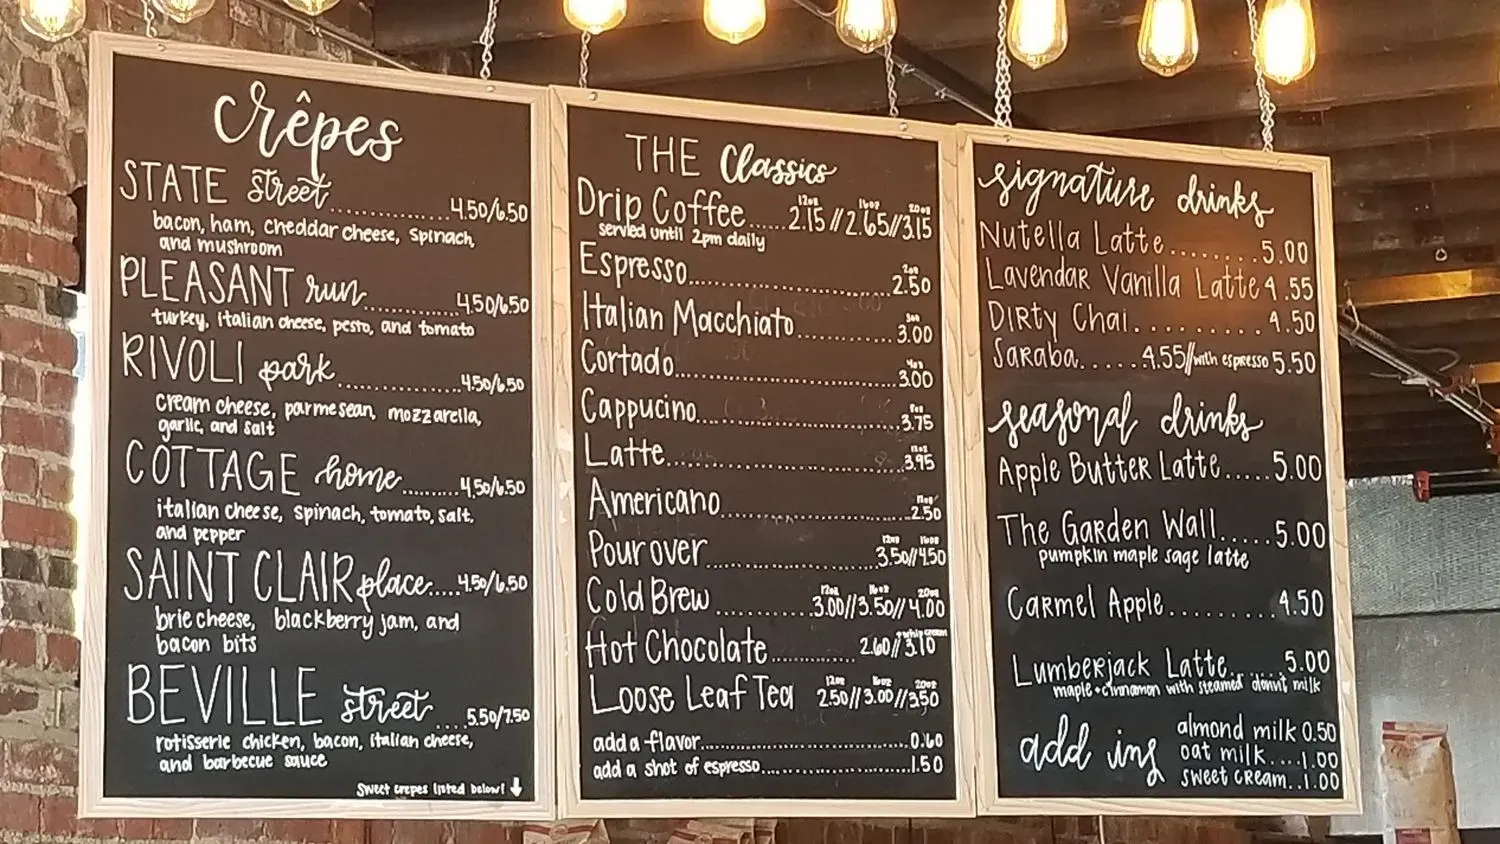 crêpes
STATE street..............4.50/6.50
bacon, ham, cheddar cheese, spinach,
and mushroom
PLEASANT run..............4.50/6.50
turkey, italian cheese, pesto, and tomato
RIVOLI park..............4.50/6.50
cream cheese, parmesean, mozzarella,
garlic, and salt
COTTAGE home.........4.50/6.50
italian cheese, spinach, tomato, salt,
and pepper
SAINT CLAIR place.....4.50/6.50
brie cheese, blackberry jam, and
bacon bits
BEVILLE street ....5.50/7.50
rotisserie chicken, bacon, italian cheese,
and barbecue sauce
Sweet crepes listed below! ↓
THE Classics
12oz 16oz 20oz
Drip Coffee......2.15//2.65//3.15
served until 2pm daily
2oz
Espresso..............2.50
Italian Macchiato..............3.00
Cortado..............3.00
8oz
Cappucino..............3.75
12oz
Latte..............3.95
12oz
Americano..............2.50
12oz 16oz
Pour over..............3.50//4.50
12oz 16oz 20oz
Cold Brew..............3.00//3.50//4.00
+whip cream
Hot Chocolate..............2.60//3.10
12oz 16oz 20oz
Loose Leaf Tea 2.50//3.00//3.50
add a flavor..............0.60
add a shot of espresso..............1.50
signature drinks
Nutella Latte........5.00
Lavendar Vanilla Latte 4.55
Dirty Chai.........4.50
Saraba......4.55//with espresso 5.50
seasonal drinks
Apple Butter Latte.....5.00
The Garden Wall.....5.00
pumpkin maple sage latte
Carmel Apple.......4.50
Lumberjack Latte......5.00
maple+cinnamon with steamed donut milk
add ins
almond milk 0.50
oat milk....1.00
sweet cream..1.00